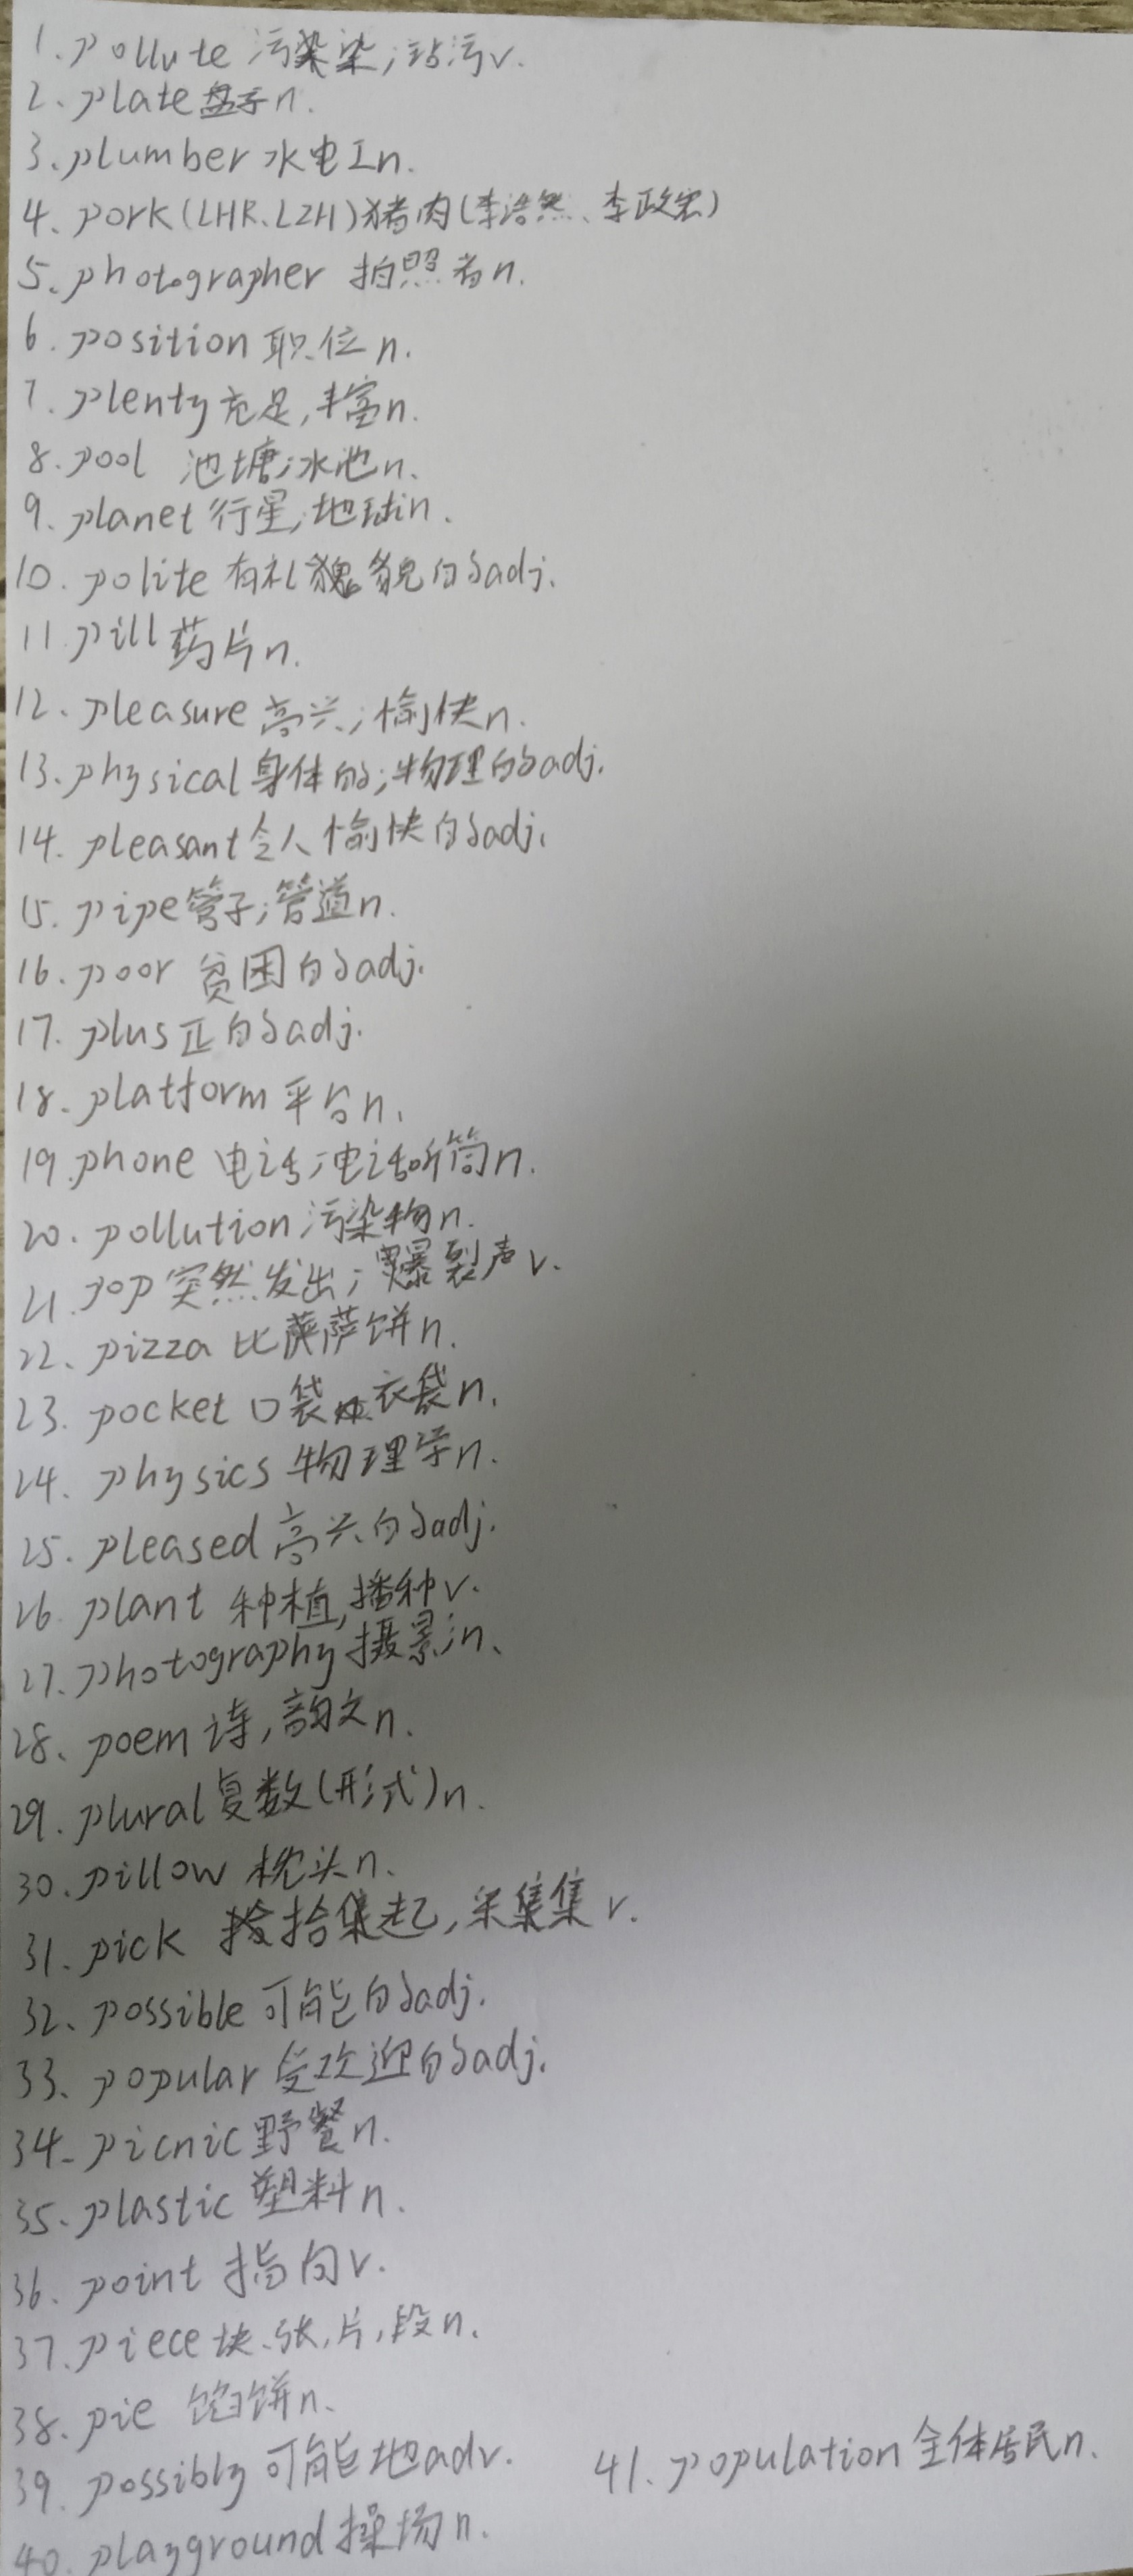 1.pollute 污染,沾污v.
2、plate盘子n.
3、plumber 水电工n.
4、pork(LHR、LZH)猪肉(李浩然、李政宏)
5、photographer 拍照者n.
6.position 职位n.
7.plenty充足,丰富n.
8.pool 池塘;水池n.
9.planet行星;地球n.
10.polite有礼貌的adj.
11.pill药片n.
12、pleasure高兴;愉快n.
13、physical身体的;物理的adj.
14.pleasant令人愉快的adj.
15.pipe管子;管道n.
16.poor 贫困的adj.
17.plus正的adj.
18.platform平台n.
19.phone 电话;电话听筒n.
20.pollution污染物n.
21.pop突然发出;爆裂声v.
22、pizza 比萨饼n.
23.pocket 口袋 衣袋n.
24.physics 物理学n.
25.pleased高兴的adj.
26.plant 种植,播种v.
27.photography摄影n、
28、poem诗,韵文n.
29.plural复数(形式)n.
30.pillow 枕头n.
31.pick 拾起,采集v.
32、possible可能的adj.
33、popular 受欢迎的adj.
34-picnic野餐n.
35、plastic塑料n.
36.point 指向v.
37.piece块、张,片,段n.
38.pie 馅饼n、
39.possibly可能地adv.
40.playground操场n.
41.population全体居民n.